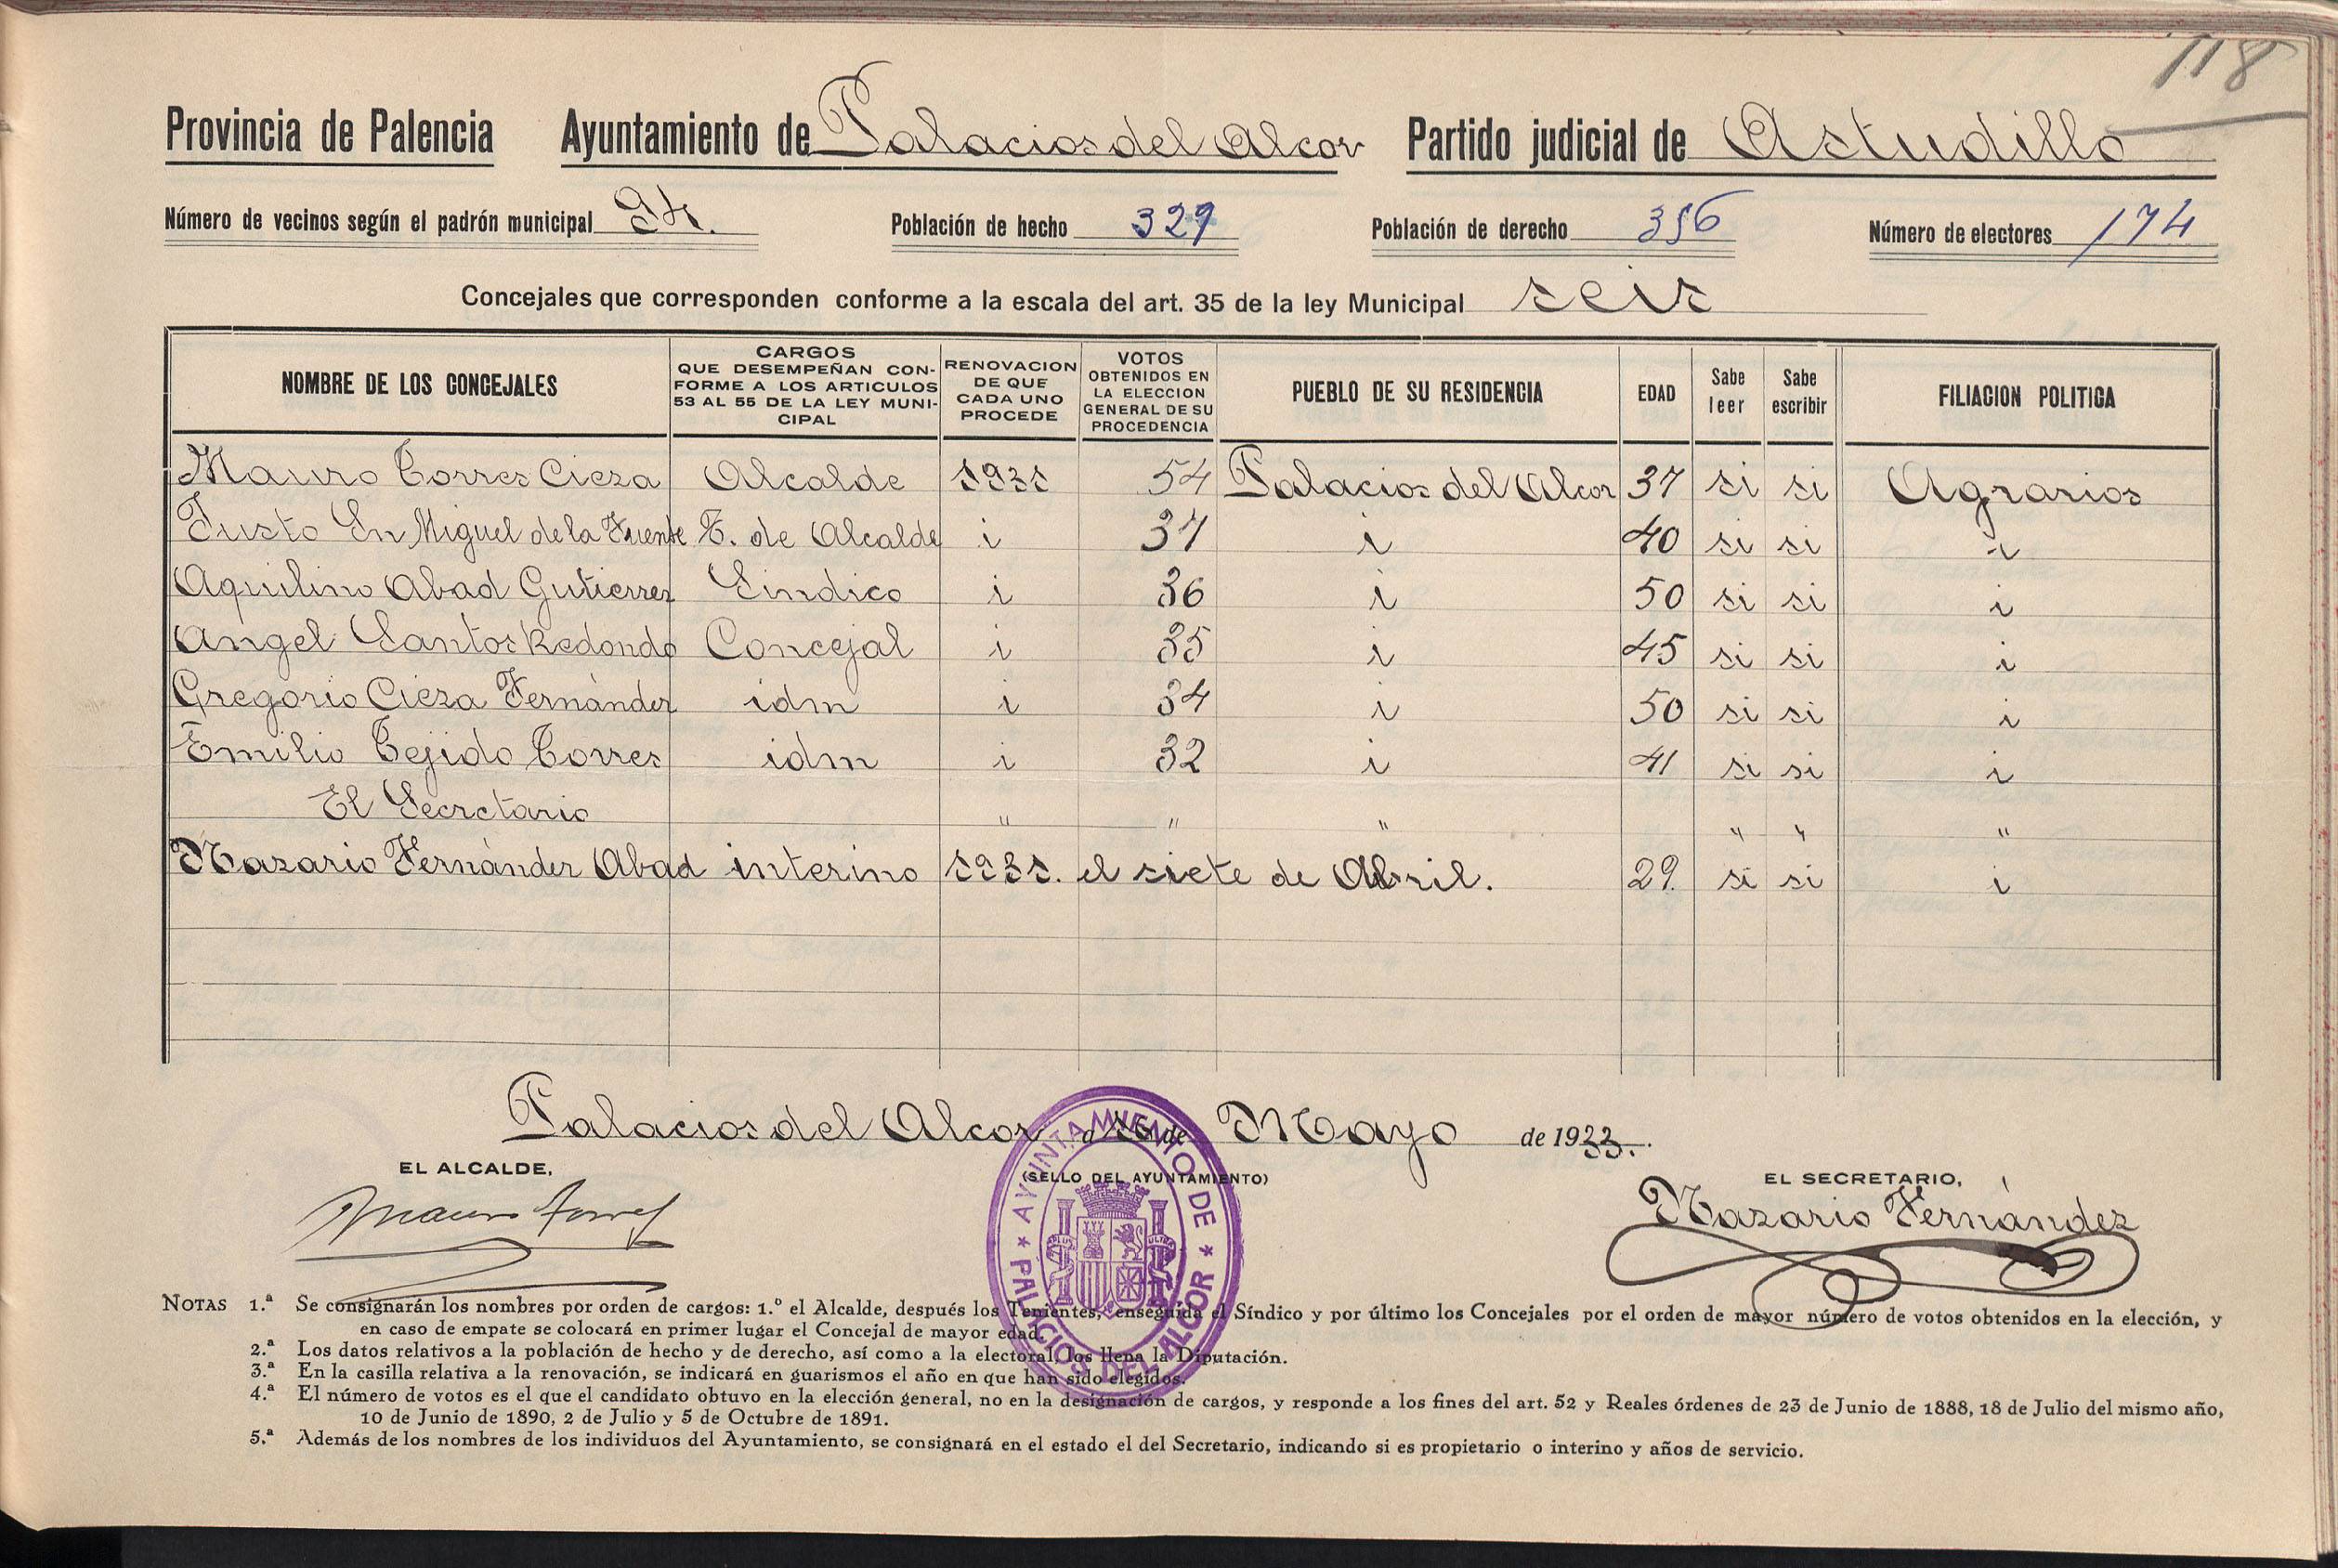 118
Provincia de Palencia Ayuntamiento de Palacios del Alcor Partido judicial de Astudillo
Número de vecinos según el padrón municipal 94. Población de hecho 329 Población de derecho 356 Número de electores 174
Concejales que corresponden conforme a la escala del art. 35 de la ley Municipal seis
NOMBRE DE LOS CONCEJALES CARGOS QUE DESEMPEÑAN CONFORME A LOS ARTICULOS 53 AL 55 DE LA LEY MUNICIPAL RENOVACION DE QUE CADA UNO PROCEDE VOTOS OBTENIDOS EN LA ELECCION GENERAL DE SU PROCEDENCIA PUEBLO DE SU RESIDENCIA EDAD Sabe leer Sabe escribir FILIACION POLITICA
Mauro Torres Cieza Alcalde 1931 54 Palacios del Alcor 37 si si Agrarios
Justo Sn Miguel de la Fuente T. de Alcalde i 37 i 40 si si i
Aquilino Abad Gutierrez Sindico i 36 i 50 si si i
Angel Santos Redondo Concejal i 35 i 45 si si i
Gregorio Cieza Fernández idm i 34 i 50 si si i
Emilio Tejido Torres idm i 32 i 41 si si i
El Secretario " " " " " "
Nazario Fernández Abad interino 1931. el siete de Abril. 29. si si i
Palacios del Alcor a 16 de Mayo de 1933.
EL ALCALDE, (SELLO DEL AYUNTAMIENTO) EL SECRETARIO,
Mauro Torres Nazario Fernández
AYUNTAMIENTO DE * PALACIOS DEL ALCOR *
PLUS ULTRA
NOTAS 1.ª Se consignarán los nombres por orden de cargos: 1.º el Alcalde, después los Tenientes, enseguida el Síndico y por último los Concejales por el orden de mayor número de votos obtenidos en la elección, y
en caso de empate se colocará en primer lugar el Concejal de mayor edad.
2.ª Los datos relativos a la población de hecho y de derecho, así como a la electoral, los llena la Diputación.
3.ª En la casilla relativa a la renovación, se indicará en guarismos el año en que han sido elegidos.
4.ª El número de votos es el que el candidato obtuvo en la elección general, no en la designación de cargos, y responde a los fines del art. 52 y Reales órdenes de 23 de Junio de 1888, 18 de Julio del mismo año,
10 de Junio de 1890, 2 de Julio y 5 de Octubre de 1891.
5.ª Además de los nombres de los individuos del Ayuntamiento, se consignará en el estado el del Secretario, indicando si es propietario o interino y años de servicio.